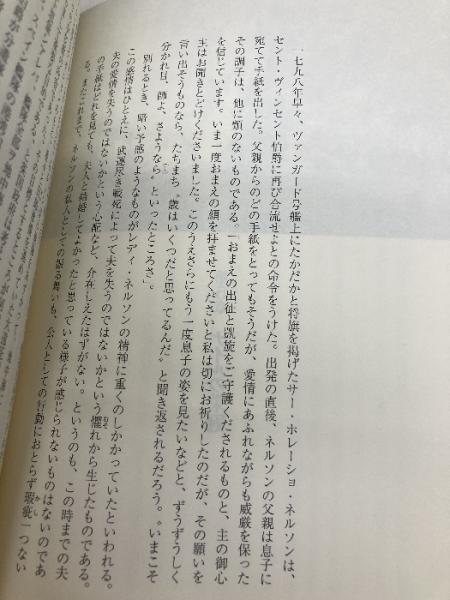 一七九八年早々、ヴァンガード号艦上にたかだかと将旗を掲げたサー・ホレーショ・ネルソンは、
セント・ヴィンセント伯爵に再び合流せよとの命令をうけた。出発の直後、ネルソンの父親は息子に
宛てて手紙を出した。父親からのどの手紙をとってもそうだが、愛情にあふれながらも威厳を保った
その調子は、他に類のないものである。「おまえの出征と凱旋をご守護くだされるものと、主の御心
を信じています。いま一度おまえの顔を拝ませてくださいと私は切にお祈りしたのだが、その願いを
主はお聞きとどけくださいました。このうえさらにもう一度息子の姿を見たいなどと、ずうずうしく
言い出そうものなら、たちまち〝歳はいくつだと思ってるんだ〟と聞き返されるだろう。〝いまこそ
分かれ目、師よ、さようなら〟といったところさ」。
別れるとき、暗い予感のようなものがレディ・ネルソンの精神に重くのしかかっていたといわれる。
この感情はひとえに、武運尽き戦死によって夫を失うのではないかという懼れから生じたものである。
夫の愛情を失うのではないかという心配など、介在しえたはずがない。というのも、この時までの夫
の手紙はどれを見ても、夫人と結婚してよかったと思っている様子が感じられないものはないのであ
る。またこれまで、ネルソンの私人としての振る舞いも、公人としての行動におとらず瑕疵一つない